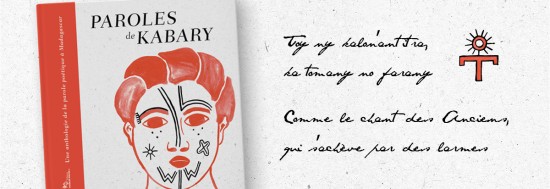 PAROLES
de KABARY
Une anthologie de la parole poétique à Madagascar
Toy ny kalon'ant tra,
ka tomany no farany
Comme le chant des Anciens,
qui s'achève par des larmes